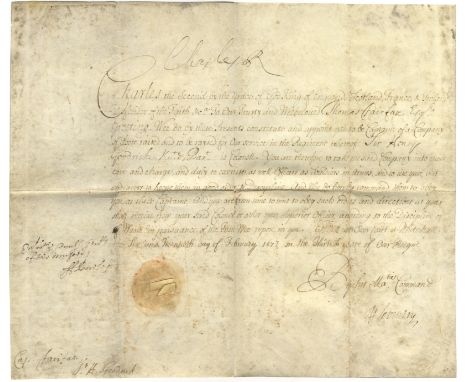 Charles R
Charles the Second by the Grace of God King of England, Scotland, France, & Ireland
Defender of the Faith &c To Our Trusty and Welbeloved Thomas Fairfax Esqr
Greeting. Wee do by these Presents constitute and appoint you to be Captain of a Company
of Foot raised and to be raised for Our Service in the Regiment whereof Sir Henry
Goodrick Knt & Bart is Colonell. You are therefore to take the said Company into your
care and charge, and duly to exercise as well Officers as Soldiers in Arms, and to use your
endeavor to keep them in good order and discipline. And we do hereby command them to obey
you as their Captain And you are from time to time to observe such orders and directions as you
shall receive from your said Colonel or other your superior Officers according to the Discipline of
Warr in pursuance of the trust Wee repose in you. Given at Our Court at Whitehall
the day of February 167 in the Thirtieth Year of Our Reign.
By his Maties Command
Cap. Fairfax
Sr H. Goodrick